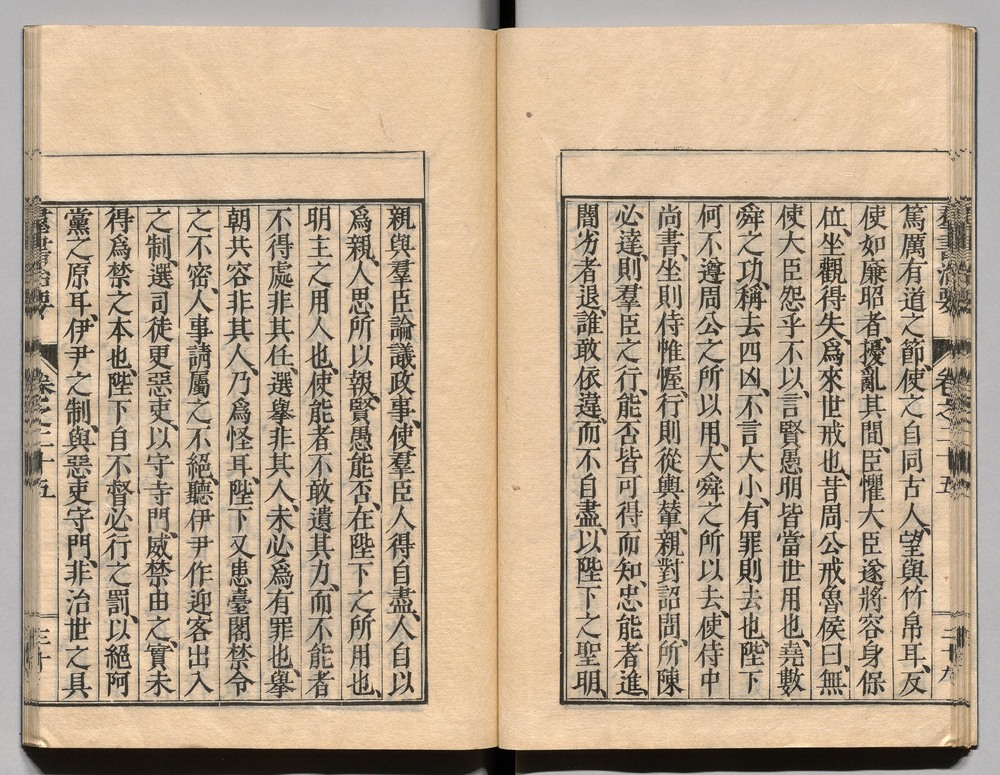 篤厲有道之節、使之自同古人、望與竹帛耳、反
使如廉昭者、擾亂其間、臣懼大臣遂將容身保
位、坐觀得失、爲來世戒也、昔周公戒魯侯曰、無
使大臣怨乎不以、言賢愚明皆當世用也、堯數
舜之功、稱去四凶、不言大小、有罪則去也、陛下
何不遵周公之所以用、大舜之所以去、使侍中
尚書、坐則侍帷幄、行則從輿輦、親對詔問、所陳
必達、則羣臣之行、能否皆可得而知、忠能者進、
闇劣者退、誰敢依違、而不自盡、以陛下之聖明、
親與羣臣論議政事、使羣臣人得自盡、人自以
爲親、人思所以報、賢愚能否、在陛下之所用也、
明主之用人也、使能者不敢遺其力、而不能者
不得處非其任、選舉非其人、未必爲有罪也、舉
朝共容非其人、乃爲怪耳、陛下又患臺閣禁令
之不密、人事請屬之不絕、聽伊尹作迎客出入
之制、選司徒更惡吏、以守寺門、威禁由之、實未
得爲禁之本也、陛下自不督必行之罰、以絕阿
黨之原耳、伊尹之制、與惡吏守門、非治世之具
羣書治要
卷之二十五
三十